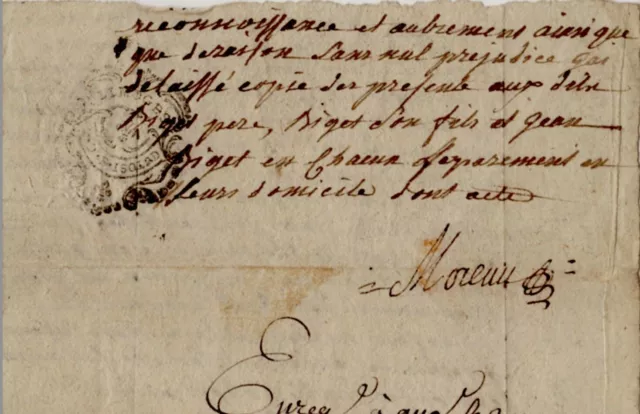 reconnoissance et autrement ainsi que
que de raison sans nul prejudice j'ai
delaissé copie des presente aux dits
Biget pere, Biget son fils et Jean
Biget en chacun separement en
leurs domicile dont acte
Morcuit
Enreg. à